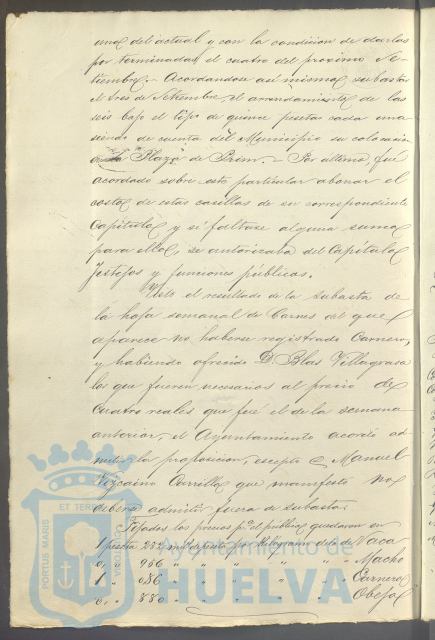 una del actual y con la condicion de darlas
por terminadas el cuatro del proximo Se-
tiembre.- Acordandose asi mismo subastar
el tres de Setiembre el arrendamiento de las
seis bajo el tipo de quince pesetas cada una
siendo de cuenta del Municipio su colocacion
Plaza de Prim.- Por ultimo fue
acordado sobre este particular abonar el
costo de estas casillas de su correspondiente
Capitulo y si faltase alguna suma
para ello, se autorizaba del Capitulo
festejos y funciones públicas.
Visto el resultado de la subasta de
la hoja semanal de Carnes del que
aparece no haberse registrado Carnero,
y habiendo ofrecido D. Blas Villagrasa
los que fueren necesarios al precio de
cuatro reales que fué el de la semana
anterior, el Ayuntamiento acordó ad-
mitir la proposicion, escepto Manuel
Vizcaino Carrillo que manifestó no
deberse admitir fuera de subasta.
Fijados los precios pª el público quedaron en
1 peseta 232 mil de peseta por Kilogramo de la de Vaca
0, " 956 " " " " " Macho
1 " 086 " " " " " Carnero
0, " 880 " " " " " Oveja
PORTUS MARIS ET TERRÆ
Ayuntamiento de
HUELVA